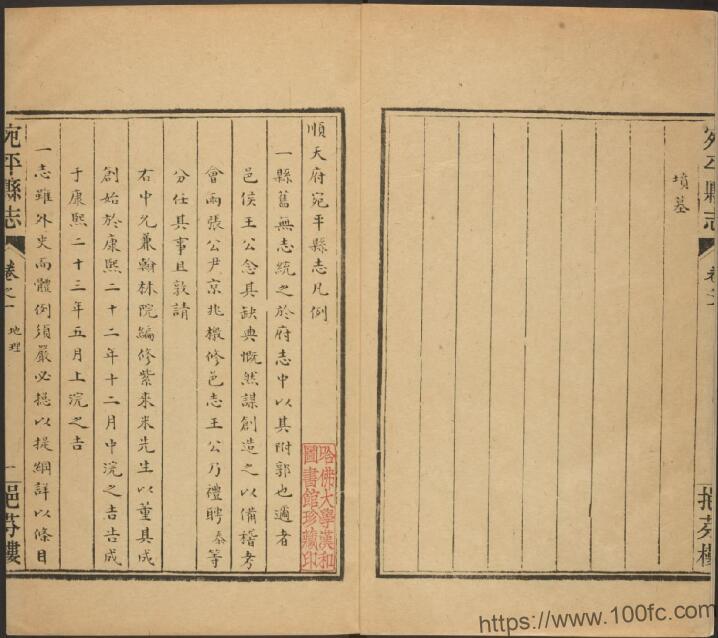 宛平縣志
墳墓
卷之一
挹芬樓
順天府宛平縣志凡例
一縣舊無志統之於府志中以其附郭也邇者
邑侯王公念其缺典慨然謀創造之以備稽考
會兩張公尹京兆檄修邑志王公乃禮聘泰等
分任其事且敦請
右中允兼翰林院編修紫來米先生以董其成
創始於康熙二十二年十二月中浣之吉告成
于康熙二十三年五月上浣之吉
一志雖外史而體例須嚴必提以提綱詳以條目
宛平縣志
卷之一
地理
一
挹芬樓
哈佛大學漢和
圖書館珍藏印
https://www.100fc.com